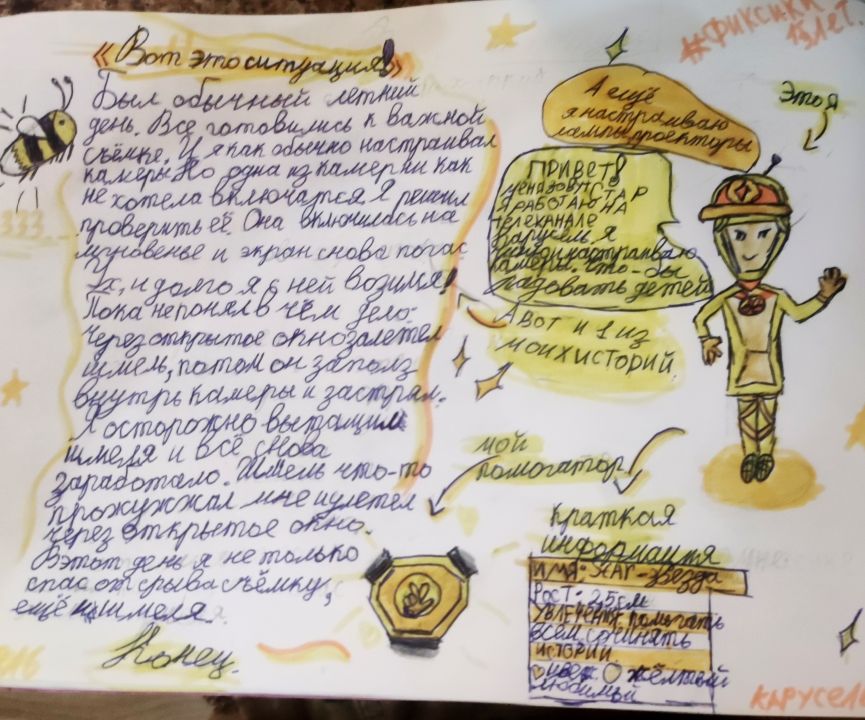 «Вот это ситуация!»
Был обычный летний
день. Все готовились к важной
съёмке. И я как обычно настраивал
камеры. Но одна из камер ни как
не хотела включатся. Я решил
проверить её. Она включилась на
мгновенье и экран снова погас
Эх, и долго я с ней возимся!
Пока не понял в чём дело.
Через открытое окно залетел
шмель, потом он заполз
внутрь камеры и застрял.
Я осторожно вытащил
шмеля и всё снова
заработало. Шмель что-то
прожужжал мне и улетел
через открытое окно.
В этот день я не только
спас от срыва съёмку,
ещё и шмеля.
Конец.
#ФИКСИКИ
13 ЛЕТ.
А ещё
я настраиваю
лампы, проекторы
Это я
ПРИВЕТ!
МЕНЯ ЗОВУТ СТАР
Я РАБОТАЮ НА
ТЕЛЕКАНАЛЕ
Карусель. Я
настраиваю
камеры, что-бы
радовать детей
А ВОТ И 1 ИЗ
МОИХ ИСТОРИЙ.
мой
помогатор!
краткая
информация
ИМЯ: Star-звезда
РОСТ: 2,5 см
УВЛЕЧЕНИЯ: помогать
всем сочинять
истории
цвет жёлтый
любимый
КАРУСЕЛ